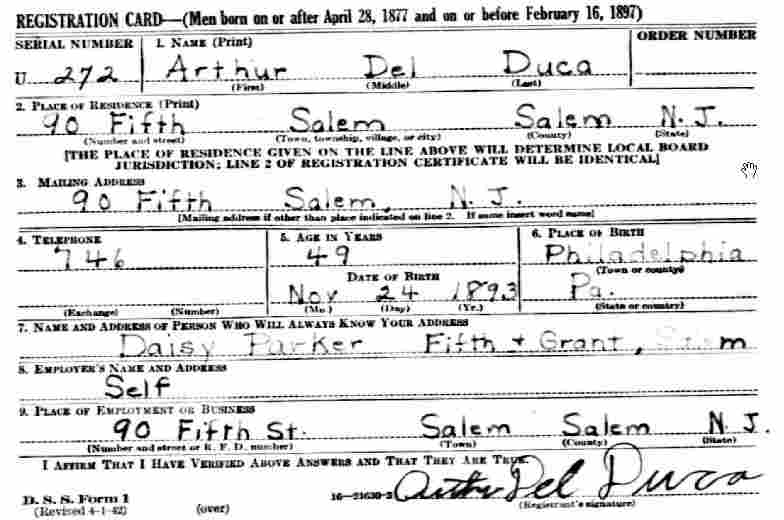 REGISTRATION CARD—(Men born on or after April 28, 1877 and on or before February 16, 1897)
SERIAL NUMBER 1. NAME (Print) ORDER NUMBER
U 272 Arthur Del Duca
(First) (Middle) (Last)
2. PLACE OF RESIDENCE (Print)
90 Fifth Salem Salem N. J.
(Number and street) (Town, township, village, or city) (County) (State)
[THE PLACE OF RESIDENCE GIVEN ON THE LINE ABOVE WILL DETERMINE LOCAL BOARD
JURISDICTION; LINE 2 OF REGISTRATION CERTIFICATE WILL BE IDENTICAL]
3. MAILING ADDRESS
90 Fifth Salem, N. J.
[Mailing address if other than place indicated on line 2. If same insert word same]
4. TELEPHONE 5. AGE IN YEARS 6. PLACE OF BIRTH
746 49 Philadelphia
(Town or county)
DATE OF BIRTH
Nov 24 1893 Pa.
(Exchange) (Number) (Mo.) (Day) (Yr.) (State or country)
7. NAME AND ADDRESS OF PERSON WHO WILL ALWAYS KNOW YOUR ADDRESS
Daisy Parker Fifth + Grant, Salem
8. EMPLOYER'S NAME AND ADDRESS
Self
9. PLACE OF EMPLOYMENT OR BUSINESS
90 Fifth St. Salem Salem N J.
(Number and street or R. F. D. number) (Town) (County) (State)
I AFFIRM THAT I HAVE VERIFIED ABOVE ANSWERS AND THAT THEY ARE TRUE.
D. S. S. Form 1 16—21630-2 Arthur Del Duca
(Revised 4-1-42) (over) (Registrant's signature)